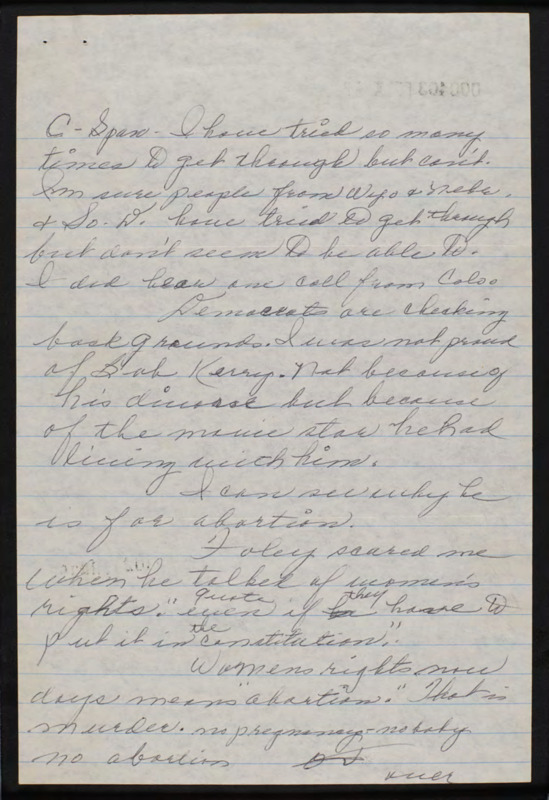 C-Span - I have tried so many
times to get through but can't.
I'm sure people from Wyo & Nebr.
& So. D. have tried to get through
but don't seem to be able to.
I did hear one call from Colo.
Democrats are checking
back grounds. I was not proud
of Bob Kerry. Not because of
his divorce but because
of the movie star he had
living with him.
I can see why he
is for abortion.
Foley scared me
when he talked of women's
rights." quote even if they have to
put it in the constitution".
Womens rights now
days means "abortion." That is
murder. no pregnancy - no baby
no abortion
over